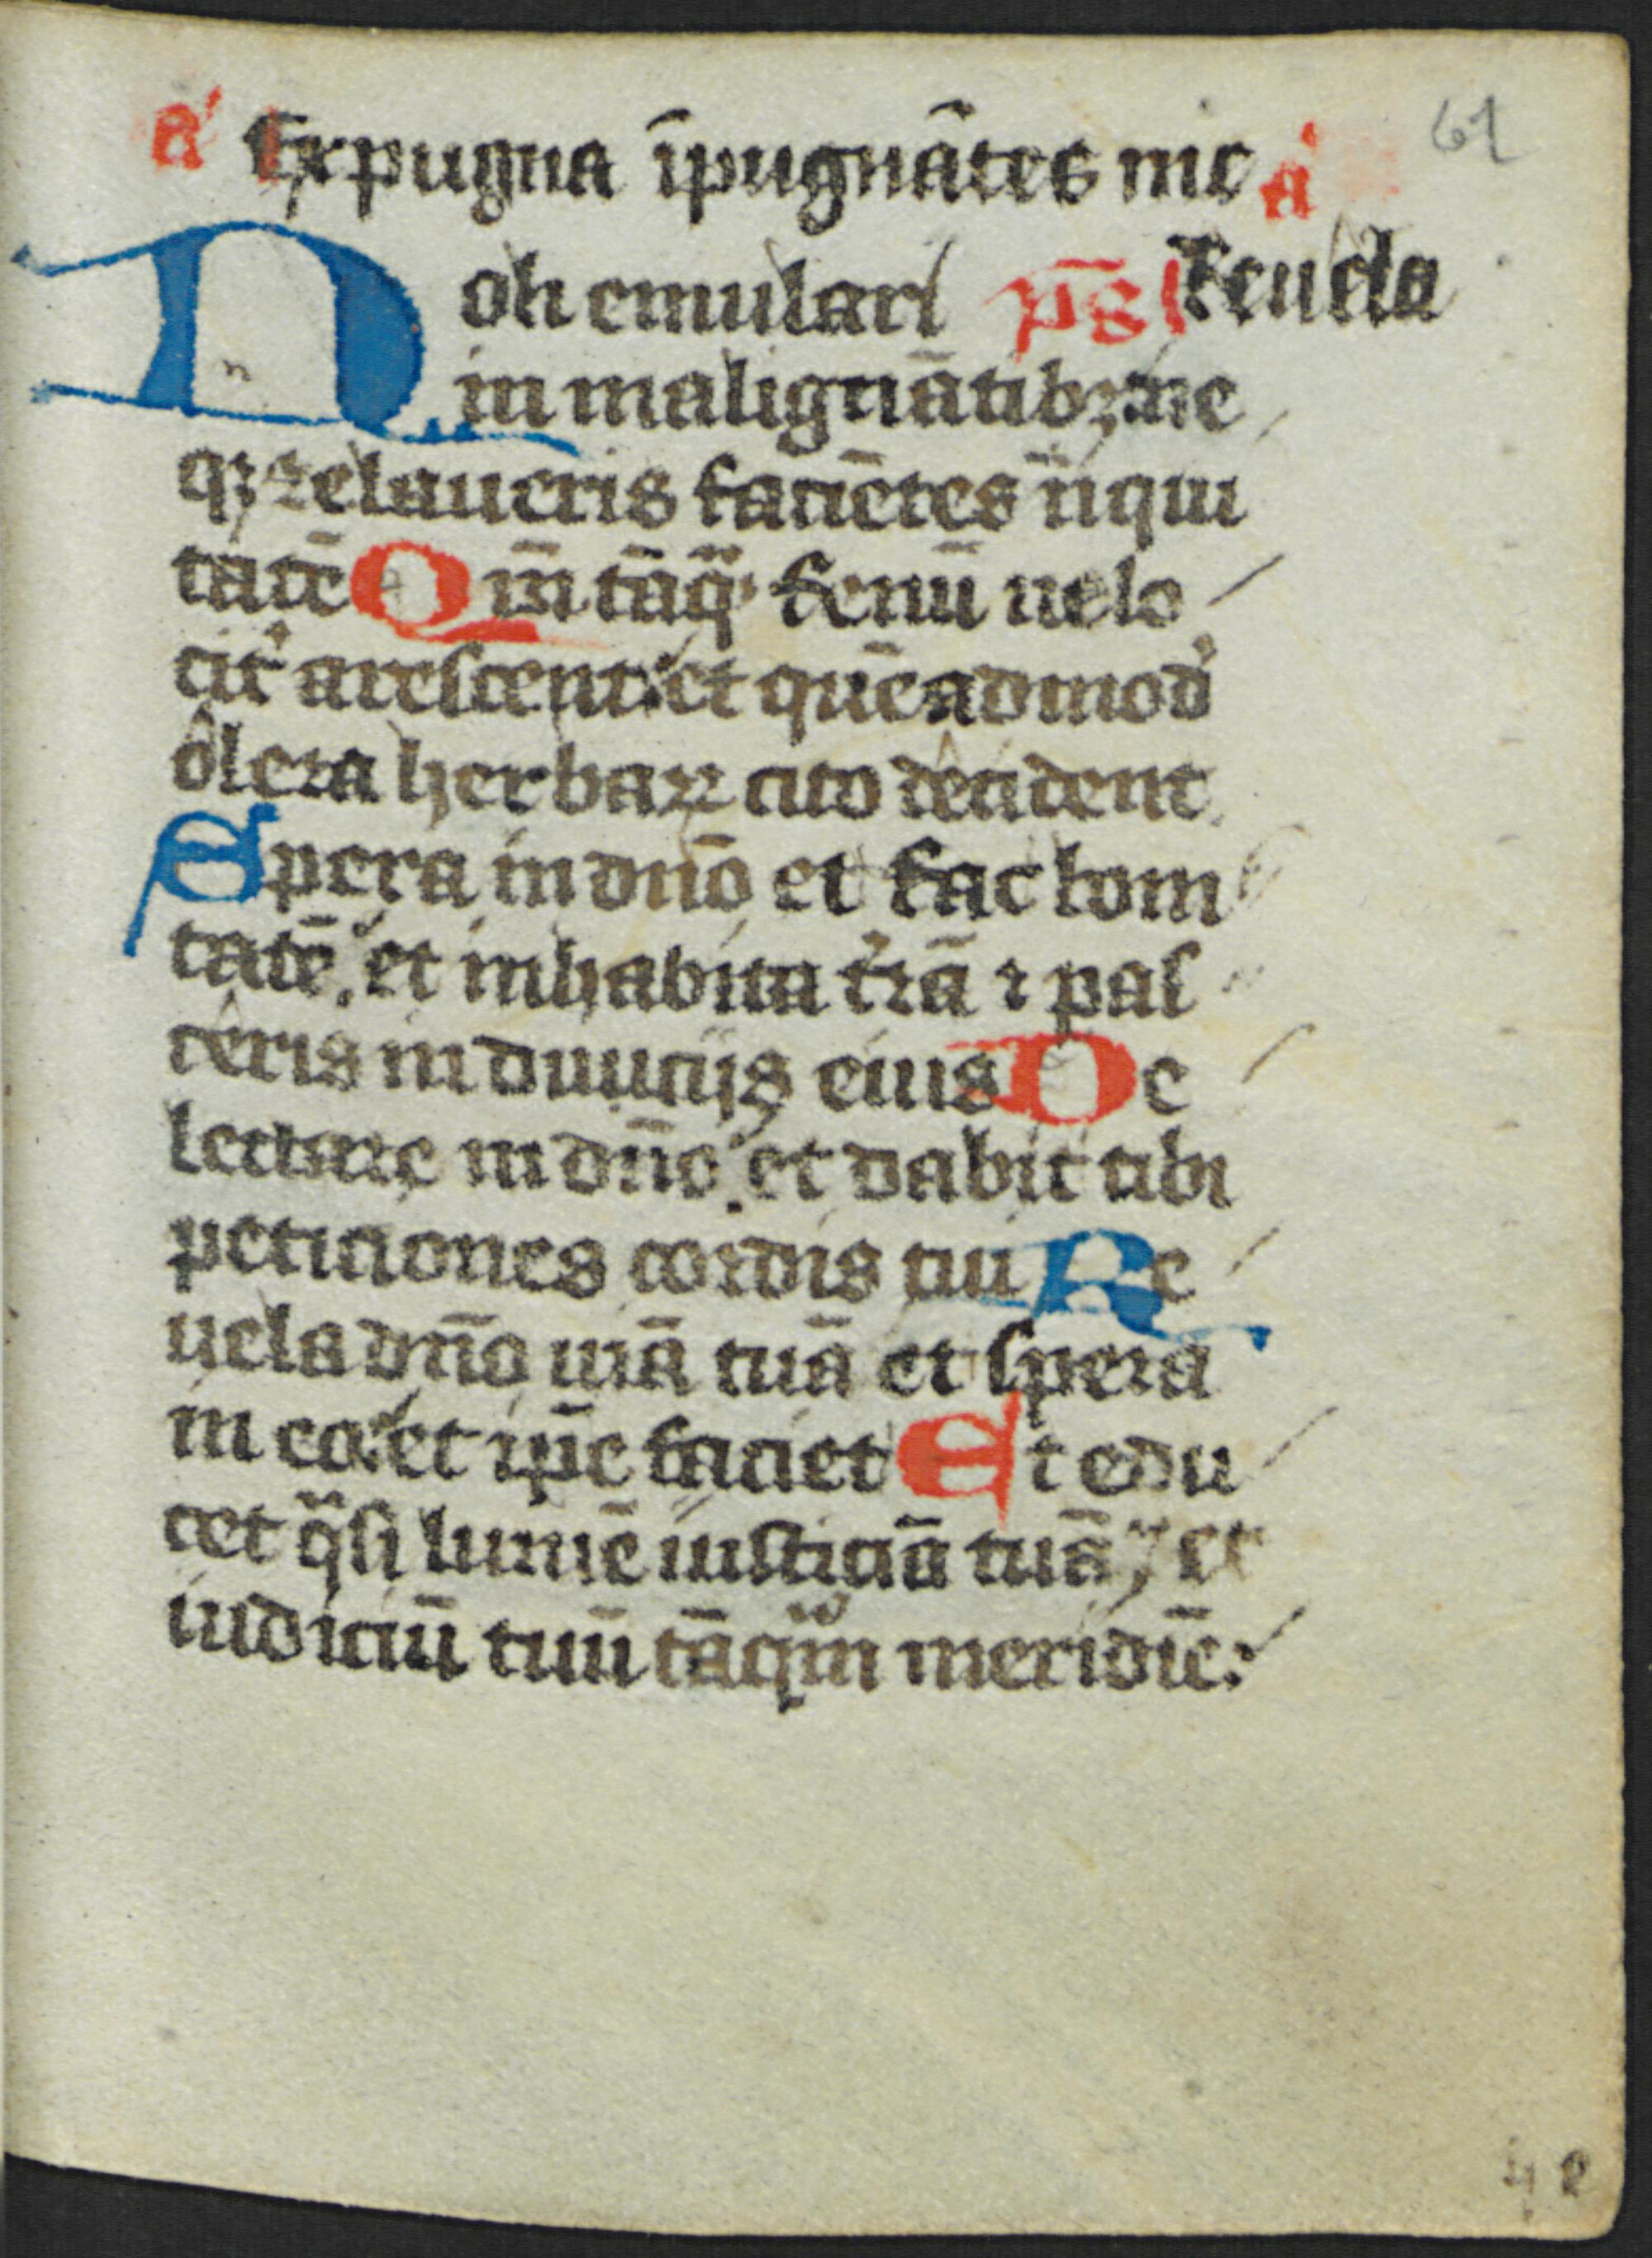 61
a' Expugna īpugnātes me a'
Noli emulari ps̄ Reuela
in malignātibꝫ ne
qꝫ zelaueris faciētes īiqui
tatē Qm̄ tāqᷓ fenū uelo
cit' arescent et quēadmod'
olera herbaꝝ cito decident
Spera in dn̄o et fac boni
tatē et inhabita t'rā ⁊ pas
ceris in diuicijs eius De
lectare in dn̄o et dabit tibi
peticiones cordis tui Re
uela dn̄o uiā tuā et spera
in eo et ip̄e faciet Et edu
cet qᷓsi lumē iusticiā tuā et
iudiciū tuū tāqᷓm meridiē